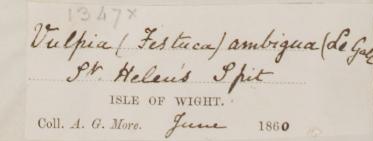 1347x
Vulpia (Festuca) ambigua (Le Gall
St. Helen's Spit
ISLE OF WIGHT.
Coll. A. G. More. June 1860